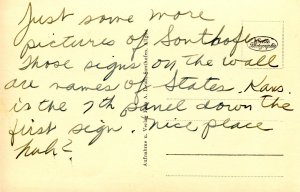 Just some more
pictures of Sonthofen
Those signs on the wall
are names of States. Kans.
is the 7th panel down the
first sign. nice place
huh?
Aufnahme u. Verlag